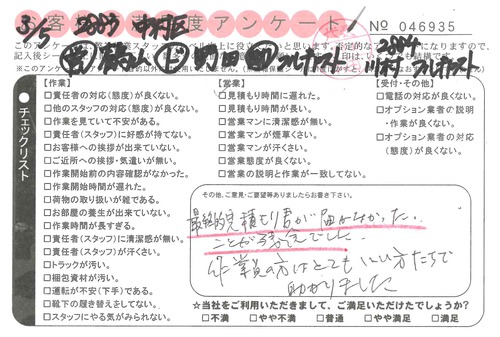 お客様満足度アンケート
№ 046935
3/5 2883 中村区
このアンケートは、
※このアンケート
チェックリスト
【作業】
□責任者の対応(態度)が良くない。
□他のスタッフの対応(態度)が良くない。
□作業を見ていて不安がある。
□責任者(スタッフ)に好感が持てない。
□お客様への挨拶が出来ていない。
□ご近所への挨拶・気遣いが無い。
□作業開始前の内容確認がなかった。
□作業開始時間が遅れた。
□荷物の取り扱いが雑である。
□お部屋の養生が出来ていない。
□作業時間が長すぎる。
□責任者(スタッフ)に清潔感が無い。
□責任者(スタッフ)が汗くさい。
□トラックが汚い。
□梱包資材が汚い。
□運転が不安(下手)である。
□靴下の履き替えさしてない。
□スタッフにやる気がみられない。
【営業】
□見積もり時間に遅れた。
□見積もり時間が長い。
□営業マンに清潔感が無い。
□営業マンが煙草くさい。
□営業マンが汗くさい。
□営業態度が良くない。
□営業の説明と作業が一致してない。
【受付・その他】
□電話の対応が良くない。
□オプション業者の説明
・作業が良くない。
□オプション業者の対応
(態度)が良くない。
その他、ご意見・ご要望等ありましたらお書き下さい。
最終的見積もり書が届かなかった
ことが残念でした
作業員の方はとてもいい方たちで
助かりました
☆当社をご利用いただきまして、ご満足いただけたでしょうか?
□不満 □やや不満 □普通 □やや満足 □満足